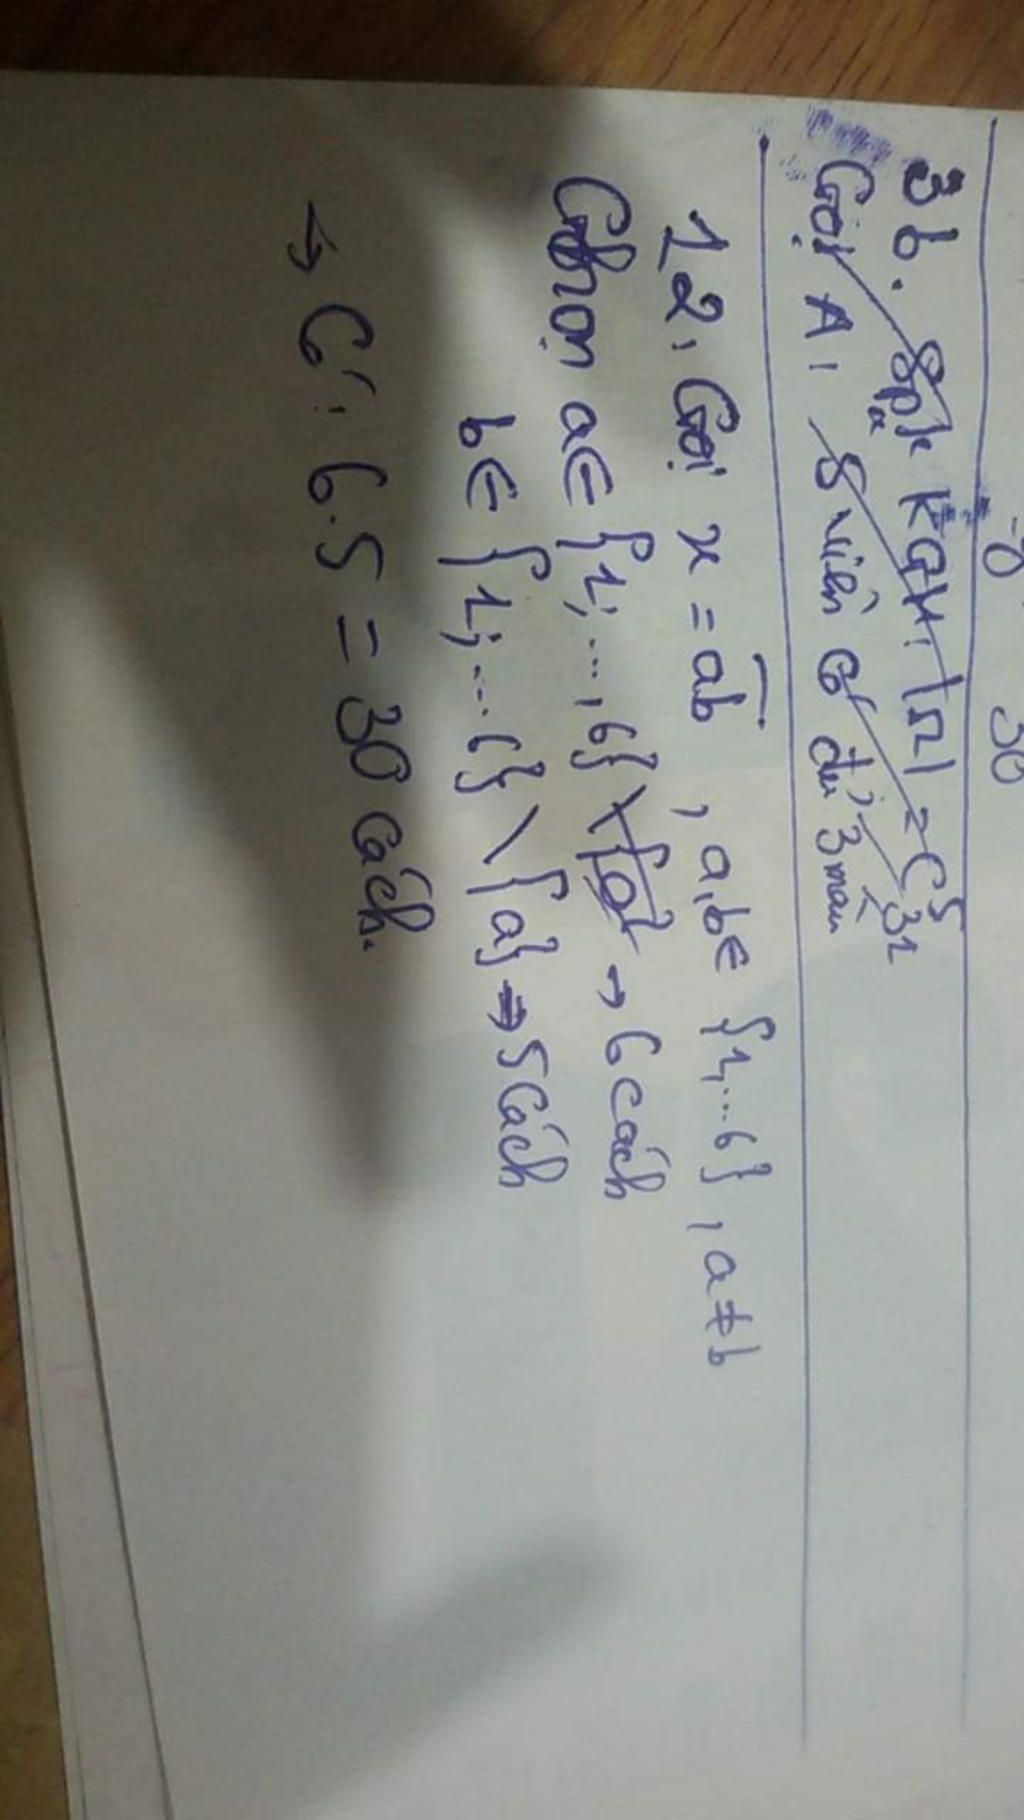 30
3b. KGM: |Ω| = C⁵₃₁
Gọi A: 8 viên có đủ 3 màu
12, Gọi x = a̅b̅, a,b ∈ {1,...6}, a ≠ b
Chọn a ∈ {1;...,6} \ {a} → 6 cách
b ∈ {1;...6} \ {a} → 5 cách
→ Có: 6.5 = 30 cách.